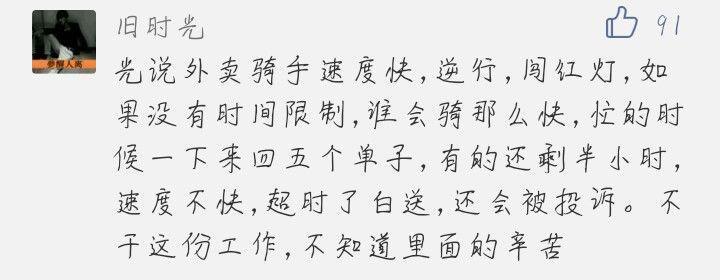 旧时光
91
光说外卖骑手速度快,逆行,闯红灯,如
果没有时间限制,谁会骑那么快,忙的时
候一下来四五个单子,有的还剩半小时,
速度不快,超时了白送,还会被投诉。不
干这份工作,不知道里面的辛苦